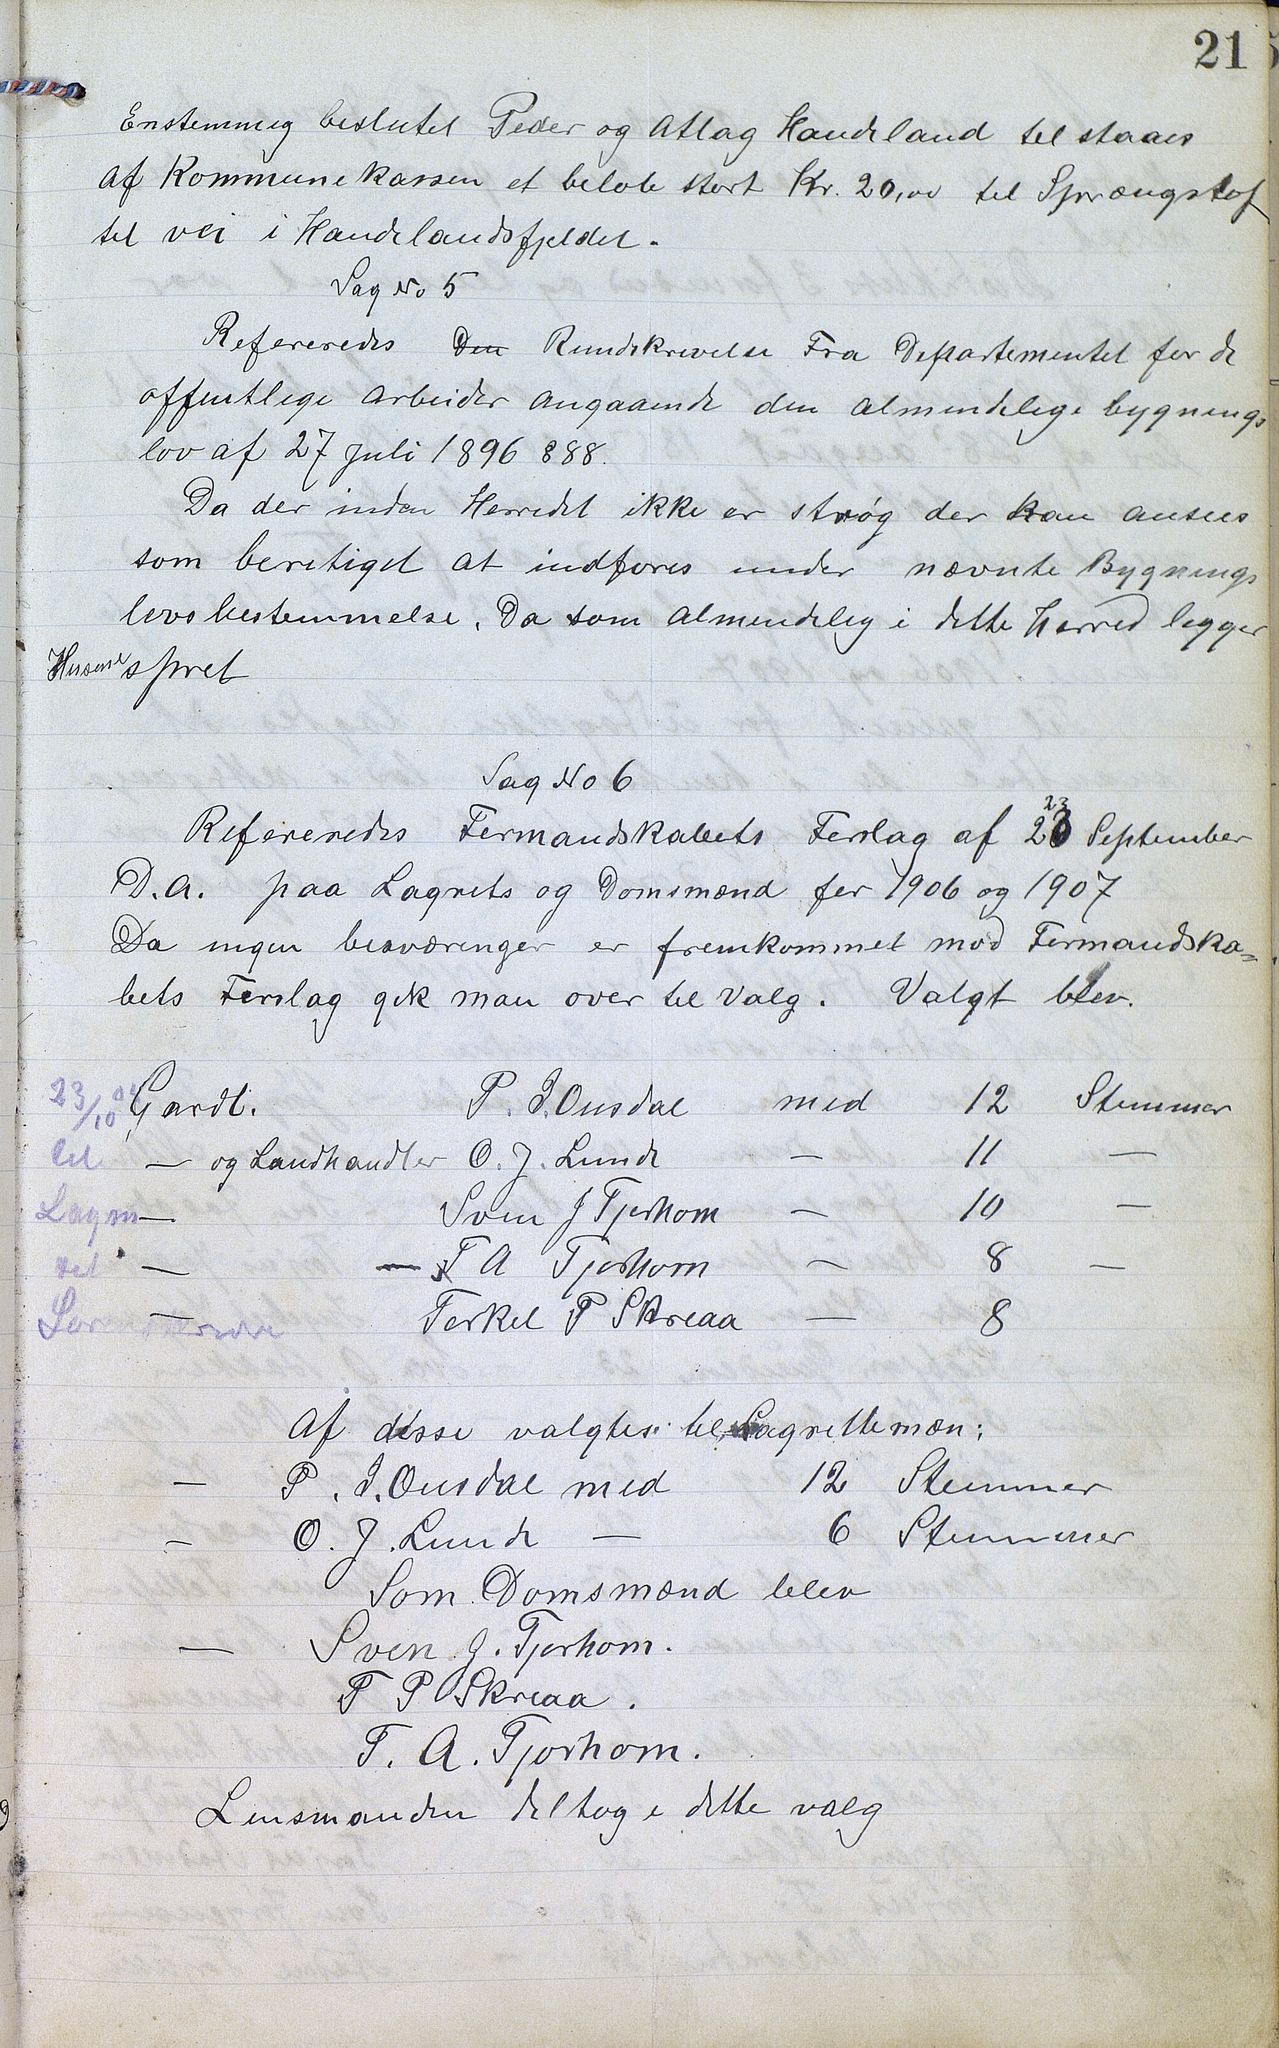 21
Enstemmig beslutet Peder og Atlag Handeland til staaes
af Kommunekassen et beløb stort Kr. 20,00 til Sprængstof
til vei i Handelandsfjeldet.
Sag No 5
Refereredes Den Rundskrivelse Fra Departementet for de
offentlige arbeider angaaende den almindelige bygnings
lov af 27 Juli 1896 §88.
Da der inden Herredet ikke er strøg der kan ansees
som beretiget at indføres under nævnte Bygnings
lovsbestemmelse. Da som almendelig i dette Herred legger
Husene spret
Sag No 6
Refereredes Formandskabets Forslag af 23 23 September
D.A. paa Lagrets og Domsmænd for 1906 og 1907
Da ingen besværinger er fremkommet mod Formandska-
bets Forslag gik man over til Valg. Valgt blev.
23/10 Gardl. P. I. Ousdal med 12 Stemmer
til — og Landhandler O. J. Lunde — 11 —
Lagm — Sven J Tjorhom — 10 —
— — T A Tjorhom — 8 —
— Torkel P Skreaa — 8
Af disse valgtes til Lagrettemæn:
— P. I. Ousdal med 12 Stemmer
— O. J. Lunde — 6 Stemmer
Som Domsmænd blev
— Sven J. Tjorhom.
T P Skreaa.
T. A. Tjorhom.
Lensmanden deltog i dette valg